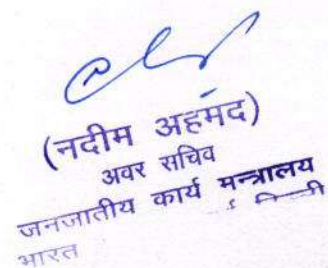 (नदीम अहमद)
अवर सचिव
जनजातीय कार्य मन्त्रालय
भारत